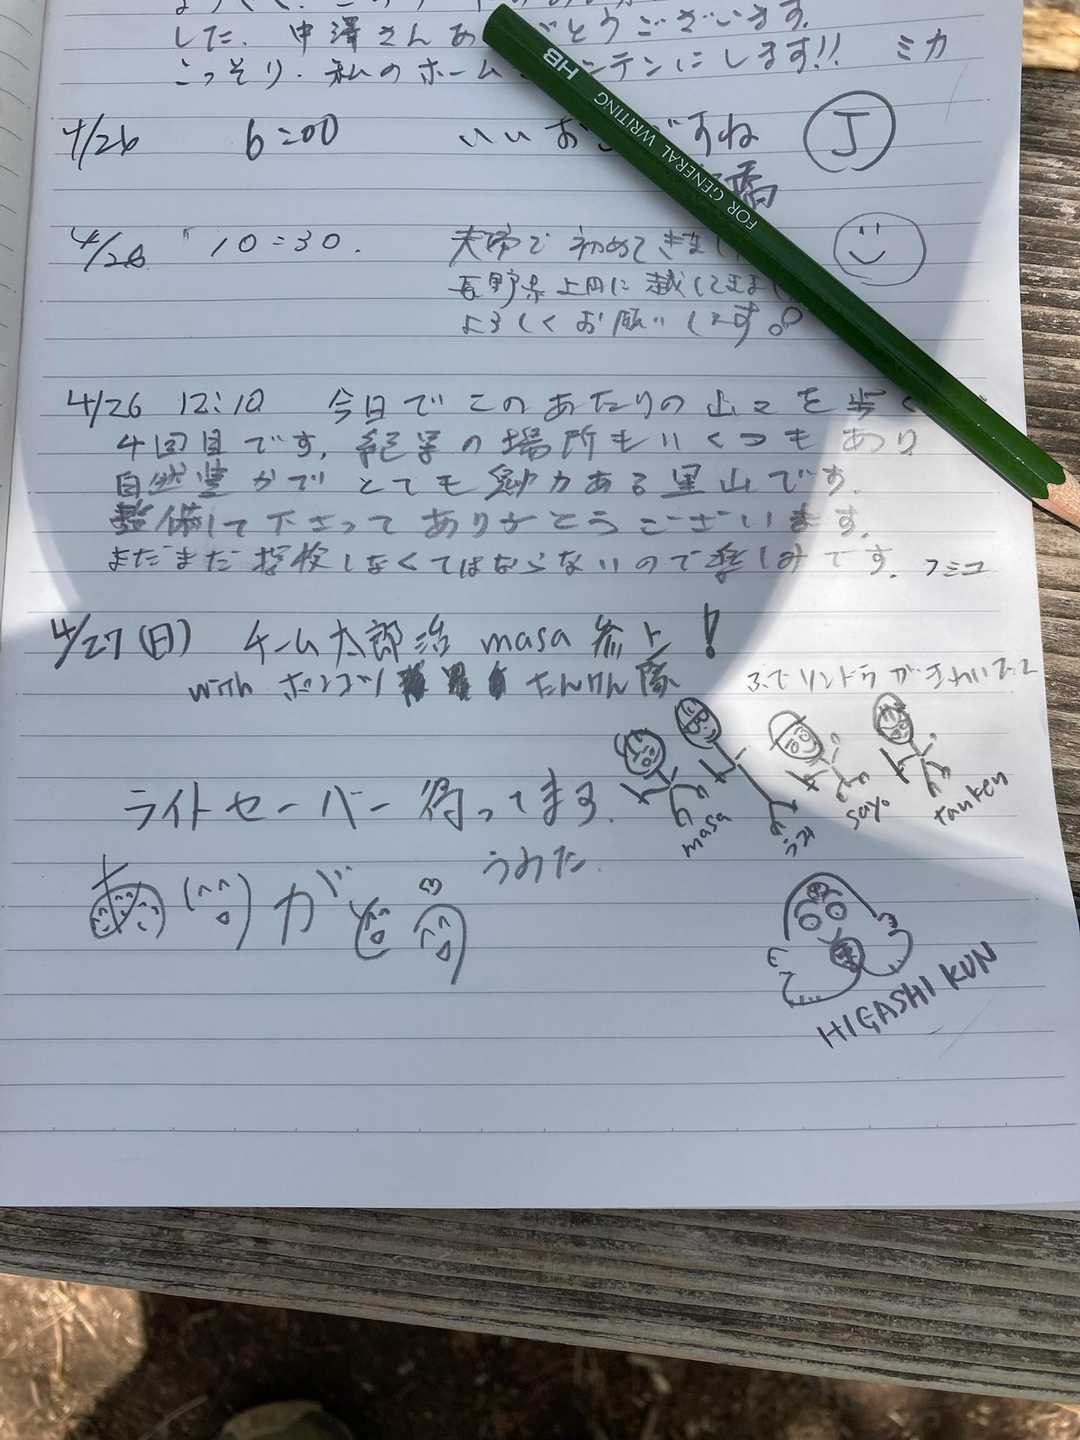 した、中澤さんあ とうございます。
こっそり、私のホーム ンテンにします!! ミカ
4/26 6:00 いいお ですね J
4/26 10:30. 夫婦で初めてきまし
長野県上田に 越してきまし
よろしくお願いします。
4/26 12:10 今日でこのあたりの山々を歩く
4回目です。絶景の場所もいくつもあり
自然豊かでとても魅力ある里山です。
整備して下さってありがとうございます。
まだまだ探検しなくてはならないので楽しみです。フミコ
4/27(日) チーム太郎治 masa 参上!
with ポンコツ たんけん隊
masa
sayo
tanken
ライトセーバー待ってます。
うめだ
が
HIGASHI KUN
HB
FOR GENERAL WRITING